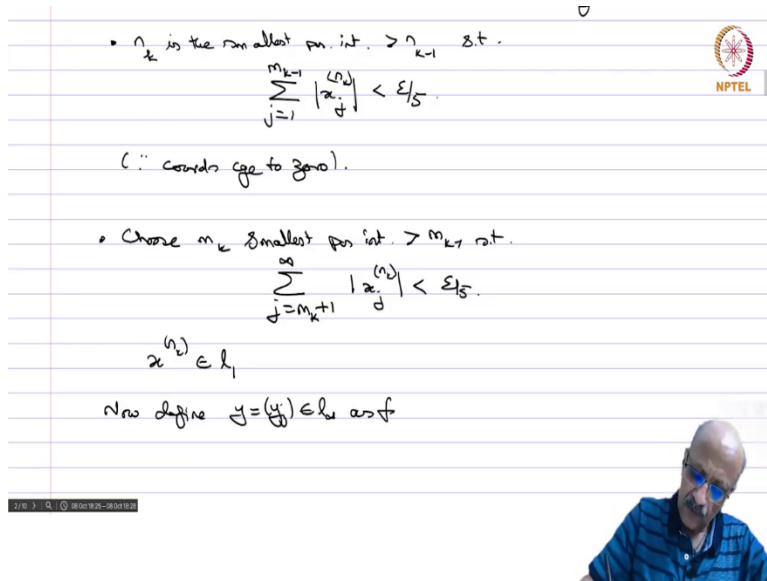 • n_k is the smallest pos. int. > n_{k-1} s.t.
NPTEL
\sum_{j=1}^{m_{k-1}} |x_j^{(n_k)}| < ε/5.
(∵ coords cge to zero).
• Choose m_k smallest pos int. > m_{k-1} s.t.
\sum_{j=m_k+1}^{∞} |x_j^{(n_k)}| < ε/5.
x^{(n_k)} ∈ l_1
Now define y = (y_j) ∈ l_∞ as f
2/10 08 Oct 18:25 - 08 Oct 18:28